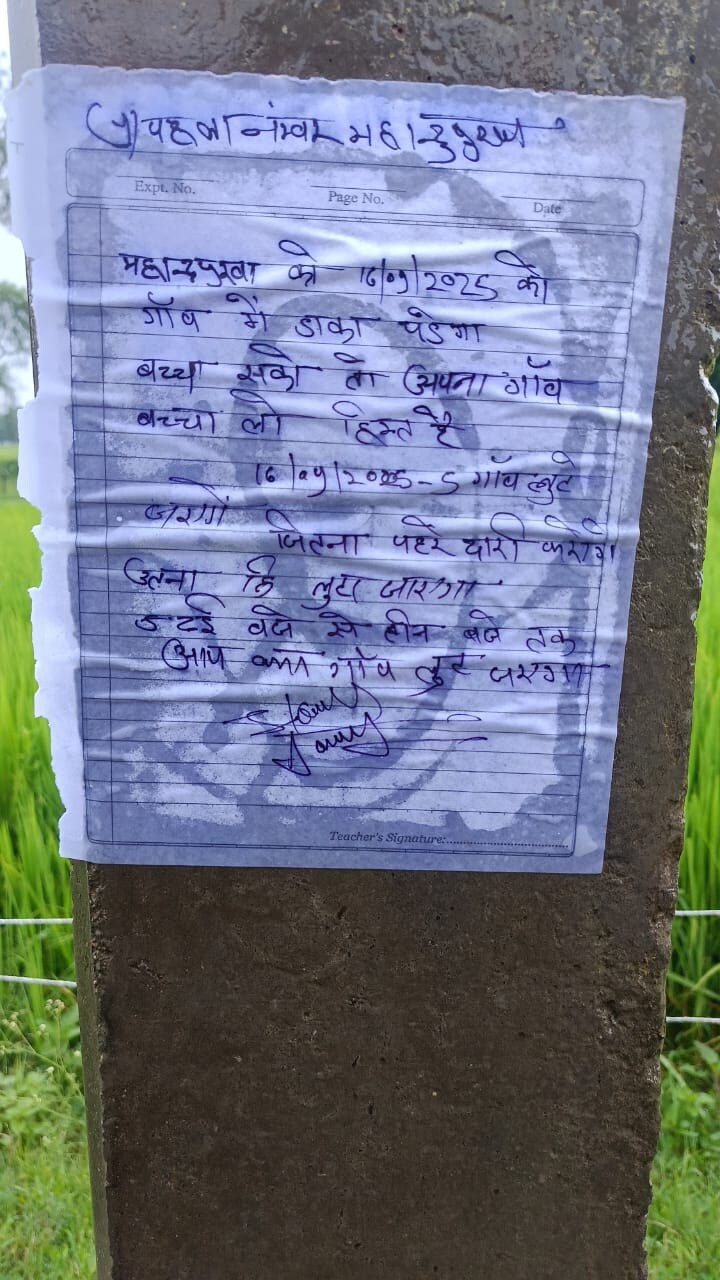 पहला नंम्वर महा
Expt. No.
Page No.
Date
को 16/09/2025 को
गाँव में डाका पडेगा
बच्चा सको तो अपना गाँव
बच्चा लो है
16/09/2025 - 5 गाँव लुटे
जएगें जितना पहरे दारी करोगे
उतना हि लुटा जाएगा
वजे से तीन बजे तक
आप का गाँव लुट जएगा
Teacher's Signature: